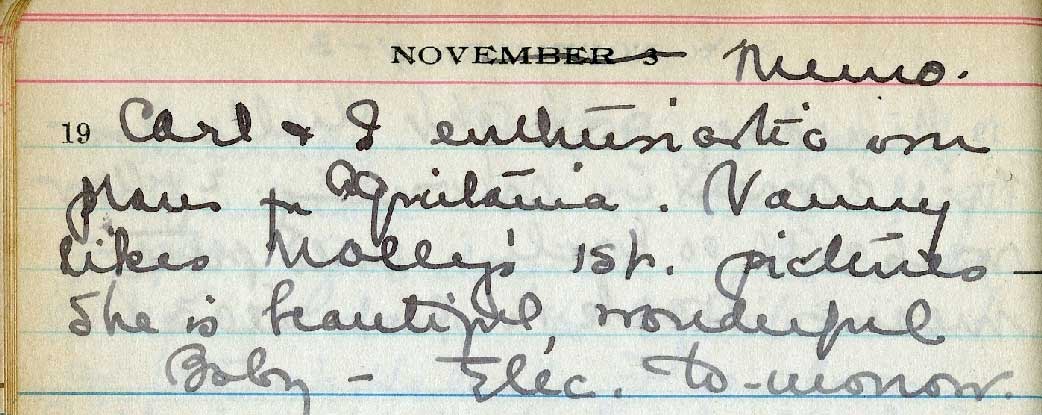 NOVEMBER 3 Memo.
19 Carl & I enthusiastic over
plans for Aquitania. Vanny
likes Molly's 1st. pictures -
She is beautiful, wonderful
Baby - Elec. to-morrow.